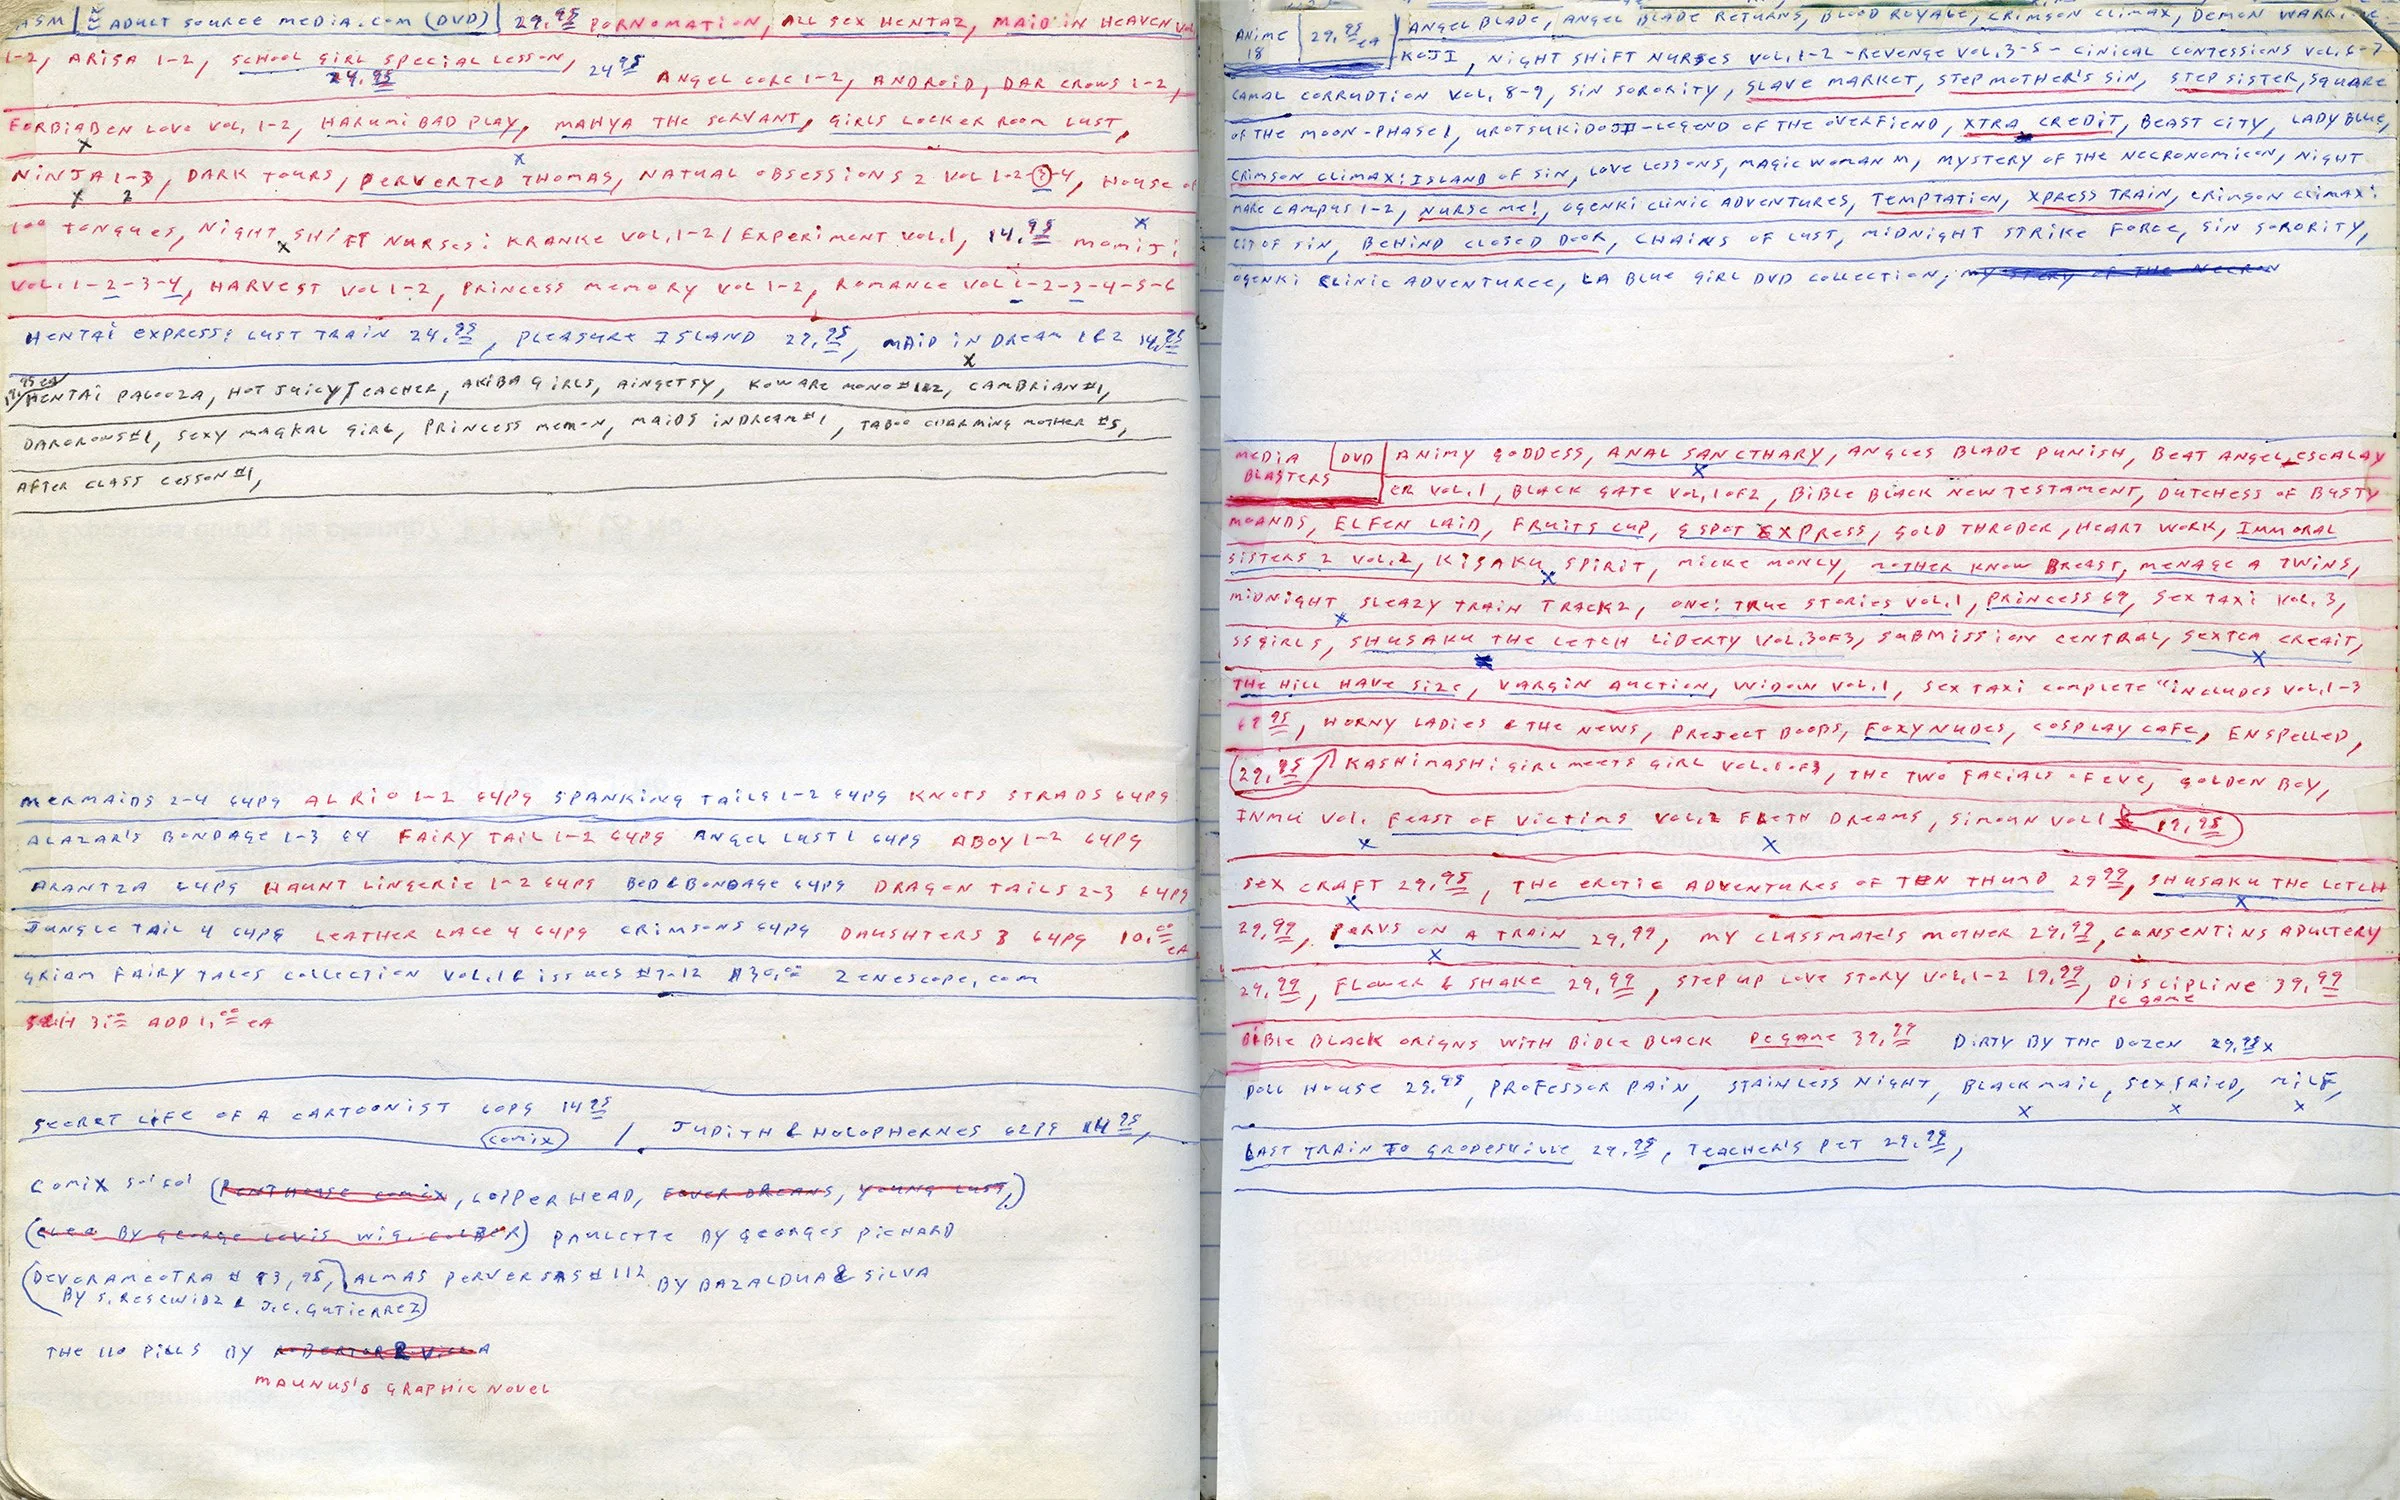 ASM | ADULT SOURCE MEDIA.COM (DVD) | 29.95 PORNOMATION, ALL SEX HENTAZ, MAID IN HEAVEN VOL
1-2, ARISA 1-2, SCHOOL GIRL SPECIAL LESSON, 24.95 ANGEL CORE 1-2, ANDROID, DAR CROWS 1-2,
29.95
FORBIABEN LOVE VOL. 1-2, HARUMI BAD PLAY, MAHYA THE SERVANT, GIRLS LOCKER ROOM LUST,
X
X
NINJA 1-3, DARK TOURS, PERVERTED THOMAS, NATUAL OBSESSIONS 2 VOL 1-2-3-4, HOUSE OF
X 2
X
100 TONGUES, NIGHT SHIFT NURSES: KRANKE VOL. 1-2 / EXPERIMENT VOL. 1, 14.95 MOMIJI
X
VOL. 1-2-3-4, HARVEST VOL 1-2, PRINCESS MEMORY VOL 1-2, ROMANCE VOL 1-2-3-4-5-6
HENTAI EXPRESS: LUST TRAIN 24.95, PLEASURE ISLAND 29.95, MAID IN DREAM 1&2 14.95
X
HENTAI PALOOZA, HOT JUICY TEACHER, AKIBA GIRLS, AINGETSY, KOWARE MONO #1&2, CAMBRIAN #1,
DARCROWS #1, SEXY MAGKAL GIRL, PRINCESS MEM-N, MAIDS IN DREAM #1, TABOO CHARMING MOTHER #5,
AFTER CLASS LESSON #1,
MERMAIDS 2-4 64PG AL RIO 1-2 64PG SPANKING TAILS 1-2 64PG KNOTS STRADS 64PG
ALAZAR'S BONDAGE 1-3 64 FAIRY TAIL 1-2 64PG ANGEL LUST 1 64PG ABOY 1-2 64PG
ARANTZA 64PG HAUNT LINGERIE 1-2 64PG BED & BONDAGE 64PG DRAGON TAILS 2-3 64PG
JUNGLE TAIL 4 64PG LEATHER LACE 4 64PG CRIMSONS 64PG DAUSHTERS 3 64PG 10.00 EA
GRIAM FAIRY TALES COLLECTION VOL. 1 & ISSUES #7-12 $30.00 ZENESCOPE.COM
S&H 3.00 ADD 1.00 EA
SECRET LIFE OF A CARTOONIST 60PG 14.95 / JUDITH & HOLOPHERNES 62PG 14.95,
COMIX
COMIX (PENTHOUSE COMIX, COPPERHEAD, FEVER DREAMS, YOUNG LUST,)
BY GEORGE LEVIS) PAULETTE BY GEORGES PICHARD
(DEVERAMEOTRA # $3.95,) ALMAS PERVERSAS # 112 BY BAZALDUA & SILVA
BY S. RESENDIZ & J.C. GUTIERREZ
THE 110 PILLS BY
MAUNUS'S GRAPHIC NOVEL
ANIME 18 | 29.95 EA | ANGEL BLADE, ANGEL BLADE RETURNS, BLOOD ROYALE, CRIMSON CLIMAX, DEMON WARRIOR
KOJI, NIGHT SHIFT NURSES VOL. 1-2 - REVENGE VOL. 3-5 - CINICAL CONTESSIONS VOL. 6-7
CAMAL CORRUPTION VOL. 8-9, SIN SORORITY, SLAVE MARKET, STEP MOTHER'S SIN, STEP SISTER, SQUARE
OF THE MOON - PHASE 1, UROTSUKIDOJI - LEGEND OF THE OVERFIEND, XTRA CREDIT, BEAST CITY, LADY BLUE,
CRIMSON CLIMAX: ISLAND OF SIN, LOVE LESSONS, MAGIC WOMAN M, MYSTERY OF THE NECRONOMICON, NIGHT
MARE CAMPUS 1-2, NURSE ME!, OGENKI CLINIC ADVENTURES, TEMPTATION, XPRESS TRAIN, CRIMSON CLIMAX:
CIT OF SIN, BEHIND CLOSED DOOR, CHAINS OF LUST, MIDNIGHT STRIKE FORCE, SIN SORORITY,
OGENKI CLINIC ADVENTUREE, LA BLUE GIRL DVD COLLECTION, MYSTERY OF THE NECRON
MEDIA BLASTERS | DVD | ANIMY GODDESS, ANAL SANCTHARY, ANGLES BLADE PUNISH, BEAT ANGEL ESCALAY
X
ER VOL. 1, BLACK GATE VOL. 1 OF 2, BIBLE BLACK NEW TESTAMENT, DUTCHESS OF BUSTY
MOANDS, ELFEN LAID, FRUITS CUP, G SPOT EXPRESS, GOLD THRODER, HEART WORK, IMMORAL
SISTERS 2 VOL. 2, KISAKU SPIRIT, MICKE MONCY, MOTHER KNOW BREAST, MENAGE A TWINS,
X
MIDNIGHT SLEAZY TRAIN TRACK 2, ONE: TRUE STORIES VOL. 1, PRINCESS 69, SEX TAXI VOL. 3,
X
SS GIRLS, SHUSAKU THE LETCH LIBERTY VOL. 3 OF 3, SUBMISSION CENTRAL, SEXTCA CREAIT,
X
THE HILL HAVE SIZE, VARGIN AUCTION, WIDOW VOL. 1, SEX TAXI COMPLETE "INCLUDES VOL. 1-3
69.95, HORNY LADIES & THE NEWS, PROJECT BOOBS, FOXY NUDES, COSPLAY CAFE, ENSPELLED,
29.95 KASHIMASHI GIRL MEETS GIRL VOL. 1 OF 3, THE TWO FACIALS OF EVE, GOLDEN BOY,
INMU VOL. FEAST OF VICTIMS VOL. 2 FLETH DREAMS, SIMOUN VOL 1 19.95
X X
SEX CRAFT 29.95, THE EROTIC ADVENTURES OF TEN THUMB 29.99, SHUSAKU THE LETCH
X X
29.99, PERVS ON A TRAIN 29.99, MY CLASSMATE'S MOTHER 29.99, CONSENTINS ADULTERY
X
29.99, FLOWER & SHAKE 29.99, STEP UP LOVE STORY VOL. 1-2 19.99, DISCIPLINE 39.99
PC GAME
BIBLE BLACK ORIGNS WITH BIBLE BLACK PC GAME 39.99 DIRTY BY THE DOZEN 29.95 X
DOLL HOUSE 29.95, PROFESSOR PAIN, STAINLESS NIGHT, BLACKMAIL, SEXFRIED, MILF,
X X X
LAST TRAIN TO GROPESVILLE 29.95, TEACHER'S PET 29.95,